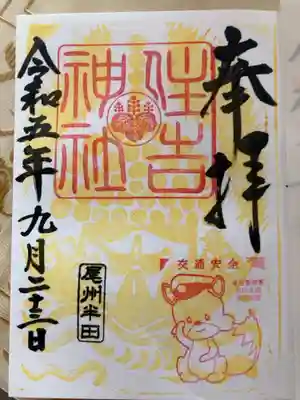 奉拝
住吉
神社
令和五年九月二十三日
尾州半田
交通安全